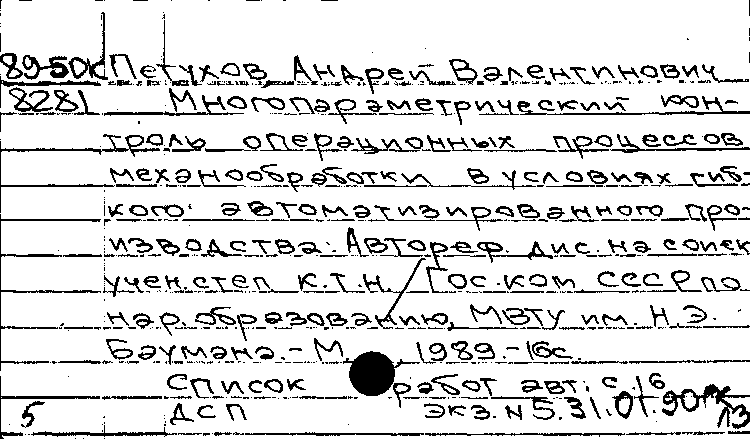 89-50к Петухов, Андрей Валентинович
8281 Многопараметрический кон-
троль операционных процессов
механообработки в условиях гиб-
кого автоматизированного про-
изводства: Автореф. дис. на соиск
учен. степ к.т.н. / Гос. ком СССР по
нар. образованию, МВТУ им. Н.Э.
Баумана. - М., 1989. - 16с.
Список работ авт.: с. 16
5 ДСП экз. N 5. 31.01.90